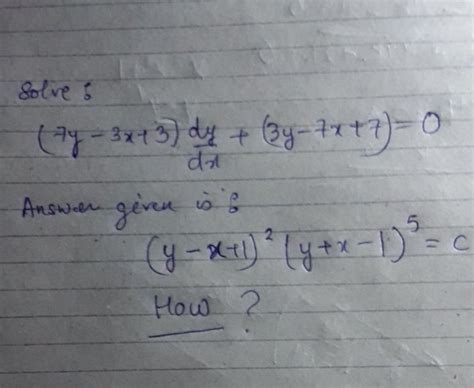 Solve :
(7y - 3x + 3) dy/dx + (3y - 7x + 7) = 0
Answer given is :
(y - x + 1)² (y + x - 1)⁵ = c
How ?